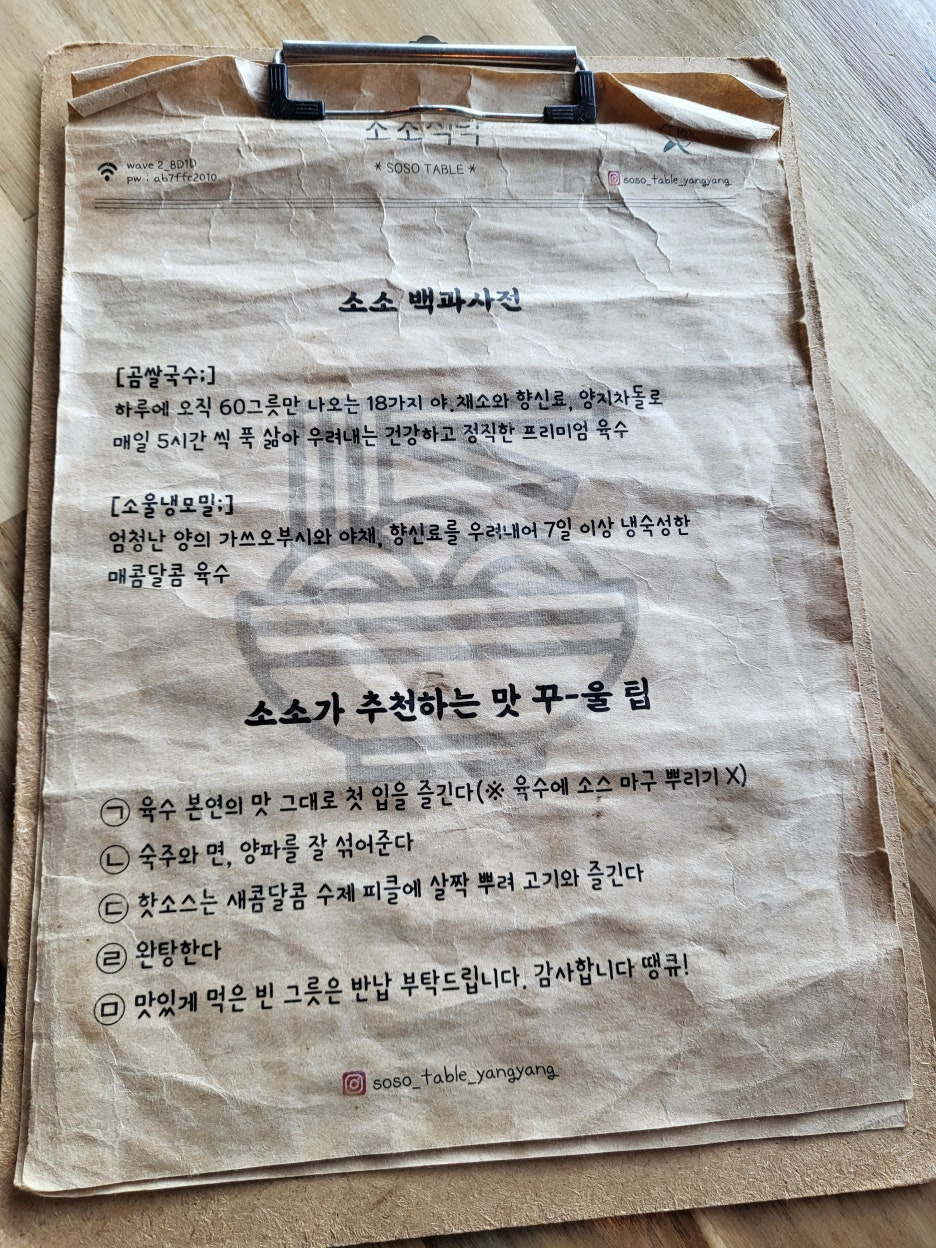 소소식탁
wave 2_BD1D
pw : ab7ffc2010
* SOSO TABLE *
soso_table_yangyang
소소 백과사전
[곰쌀국수;]
하루에 오직 60그릇만 나오는 18가지 야.채소와 향신료, 양지차돌로
매일 5시간 씩 푹 삶아 우려내는 건강하고 정직한 프리미엄 육수
[소울냉모밀;]
엄청난 양의 가쓰오부시와 야채, 향신료를 우려내어 7일 이상 냉숙성한
매콤달콤 육수
소소가 추천하는 맛 꾸-울 팁
㉠ 육수 본연의 맛 그대로 첫 입을 즐긴다(※ 육수에 소스 마구 뿌리기 X)
㉡ 숙주와 면, 양파를 잘 섞어준다
㉢ 핫소스는 새콤달콤 수제 피클에 살짝 뿌려 고기와 즐긴다
㉣ 완탕한다
㉤ 맛있게 먹은 빈 그릇은 반납 부탁드립니다. 감사합니다 땡큐!
soso_table_yangyang